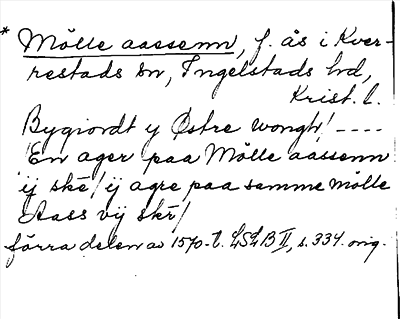 * Mölle aassenn, f. ås i Kver-
restads sn, Ingelstads hd,
Krist. l.
Bygiordt y Østre wongh! ----
En ager paa Mölle aassenn
ij skē/ ij agre paa samme mölle
Aass vij skē/
förra delen av 1570-t. LSLB II, s. 334. orig.